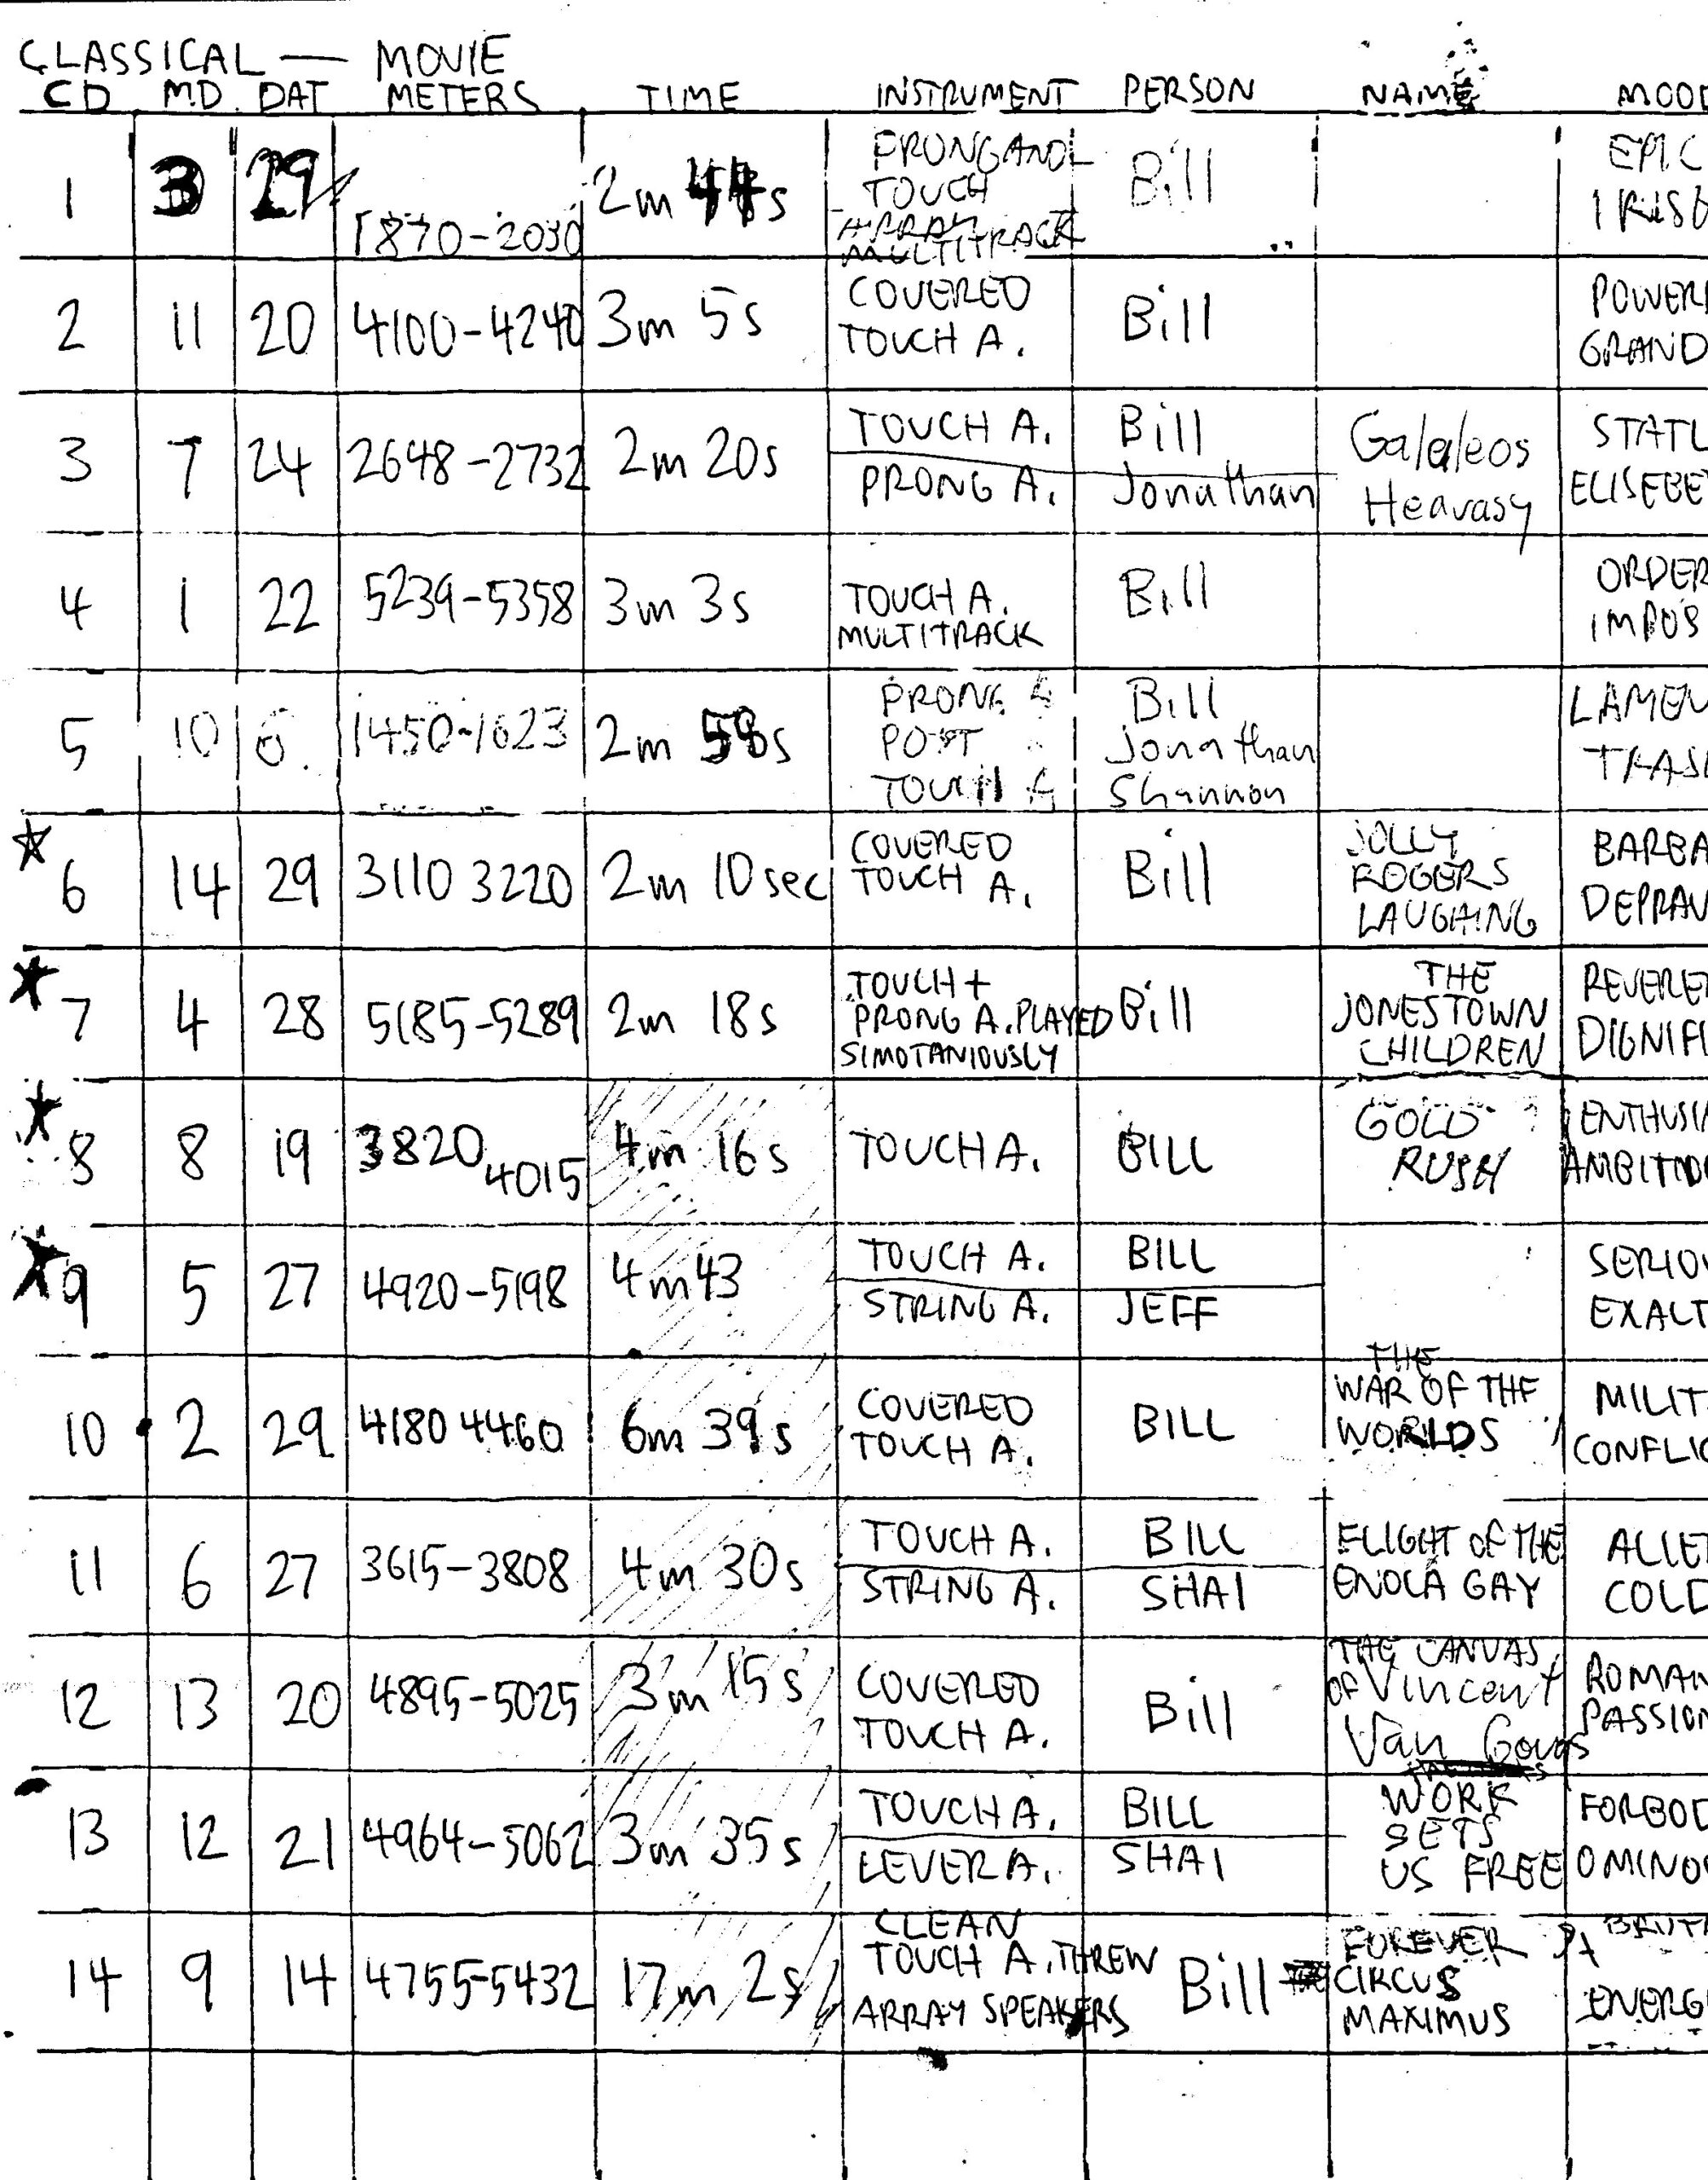 CLASSICAL — MOVIE
CD MD DAT METERS TIME INSTRUMENT PERSON NAME MOOD
1 3 29 1870-2030 2m 44s PRONG AND TOUCH ARRAY MULTITRACK Bill EPIC IRISH
2 11 20 4100-4240 3m 5s COVERED TOUCH A. Bill POWERF GRAND
3 7 24 2648-2732 2m 20s TOUCH A. PRONG A. Bill Jonathan Galaleos Heavasy STATL ELISEBET
4 1 22 5239-5358 3m 3s TOUCH A. MULTITRACK Bill ORDER IMPOS
5 10 6 1450-1623 2m 58s PRONG POST TOUCH Bill Jonathan Shannon LAMEN
6 14 29 3110 3220 2m 10sec COVERED TOUCH A. Bill JOLLY ROGERS LAUGHING BARBA DEPRAV
7 4 28 5185-5289 2m 18s TOUCH + PRONG A. PLAYED SIMOTANIOUSLY Bill THE JONESTOWN CHILDREN REVEREN DIGNIFI
8 8 19 3820 4015 4m 16s TOUCH A. BILL GOLD RUSH ENTHUSIA AMBITIOU
9 5 27 4920-5198 4m43 TOUCH A. STRING A. BILL JEFF SERIOU EXALT
10 2 29 4180 4460 6m 39s COVERED TOUCH A. BILL THE WAR OF THE WORLDS MILIT CONFLIC
11 6 27 3615-3808 4m 30s TOUCH A. STRING A. BILL SHAI FLIGHT OF THE ENOLA GAY ALIE COLD
12 13 20 4895-5025 3m 15s COVERED TOUCH A. Bill THE CANVAS OF Vincent Van Gougs ROMAN PASSION
13 12 21 4964-5062 3m 35s TOUCH A. LEVER A. BILL SHAI WORK SETS US FREE FORBOD OMINOU
14 9 14 4755-5432 17m 2s CLEAN TOUCH A. THREW ARRAY SPEAKERS Bill FOREVER CIRCUS MAXIMUS BRUTA ENERG